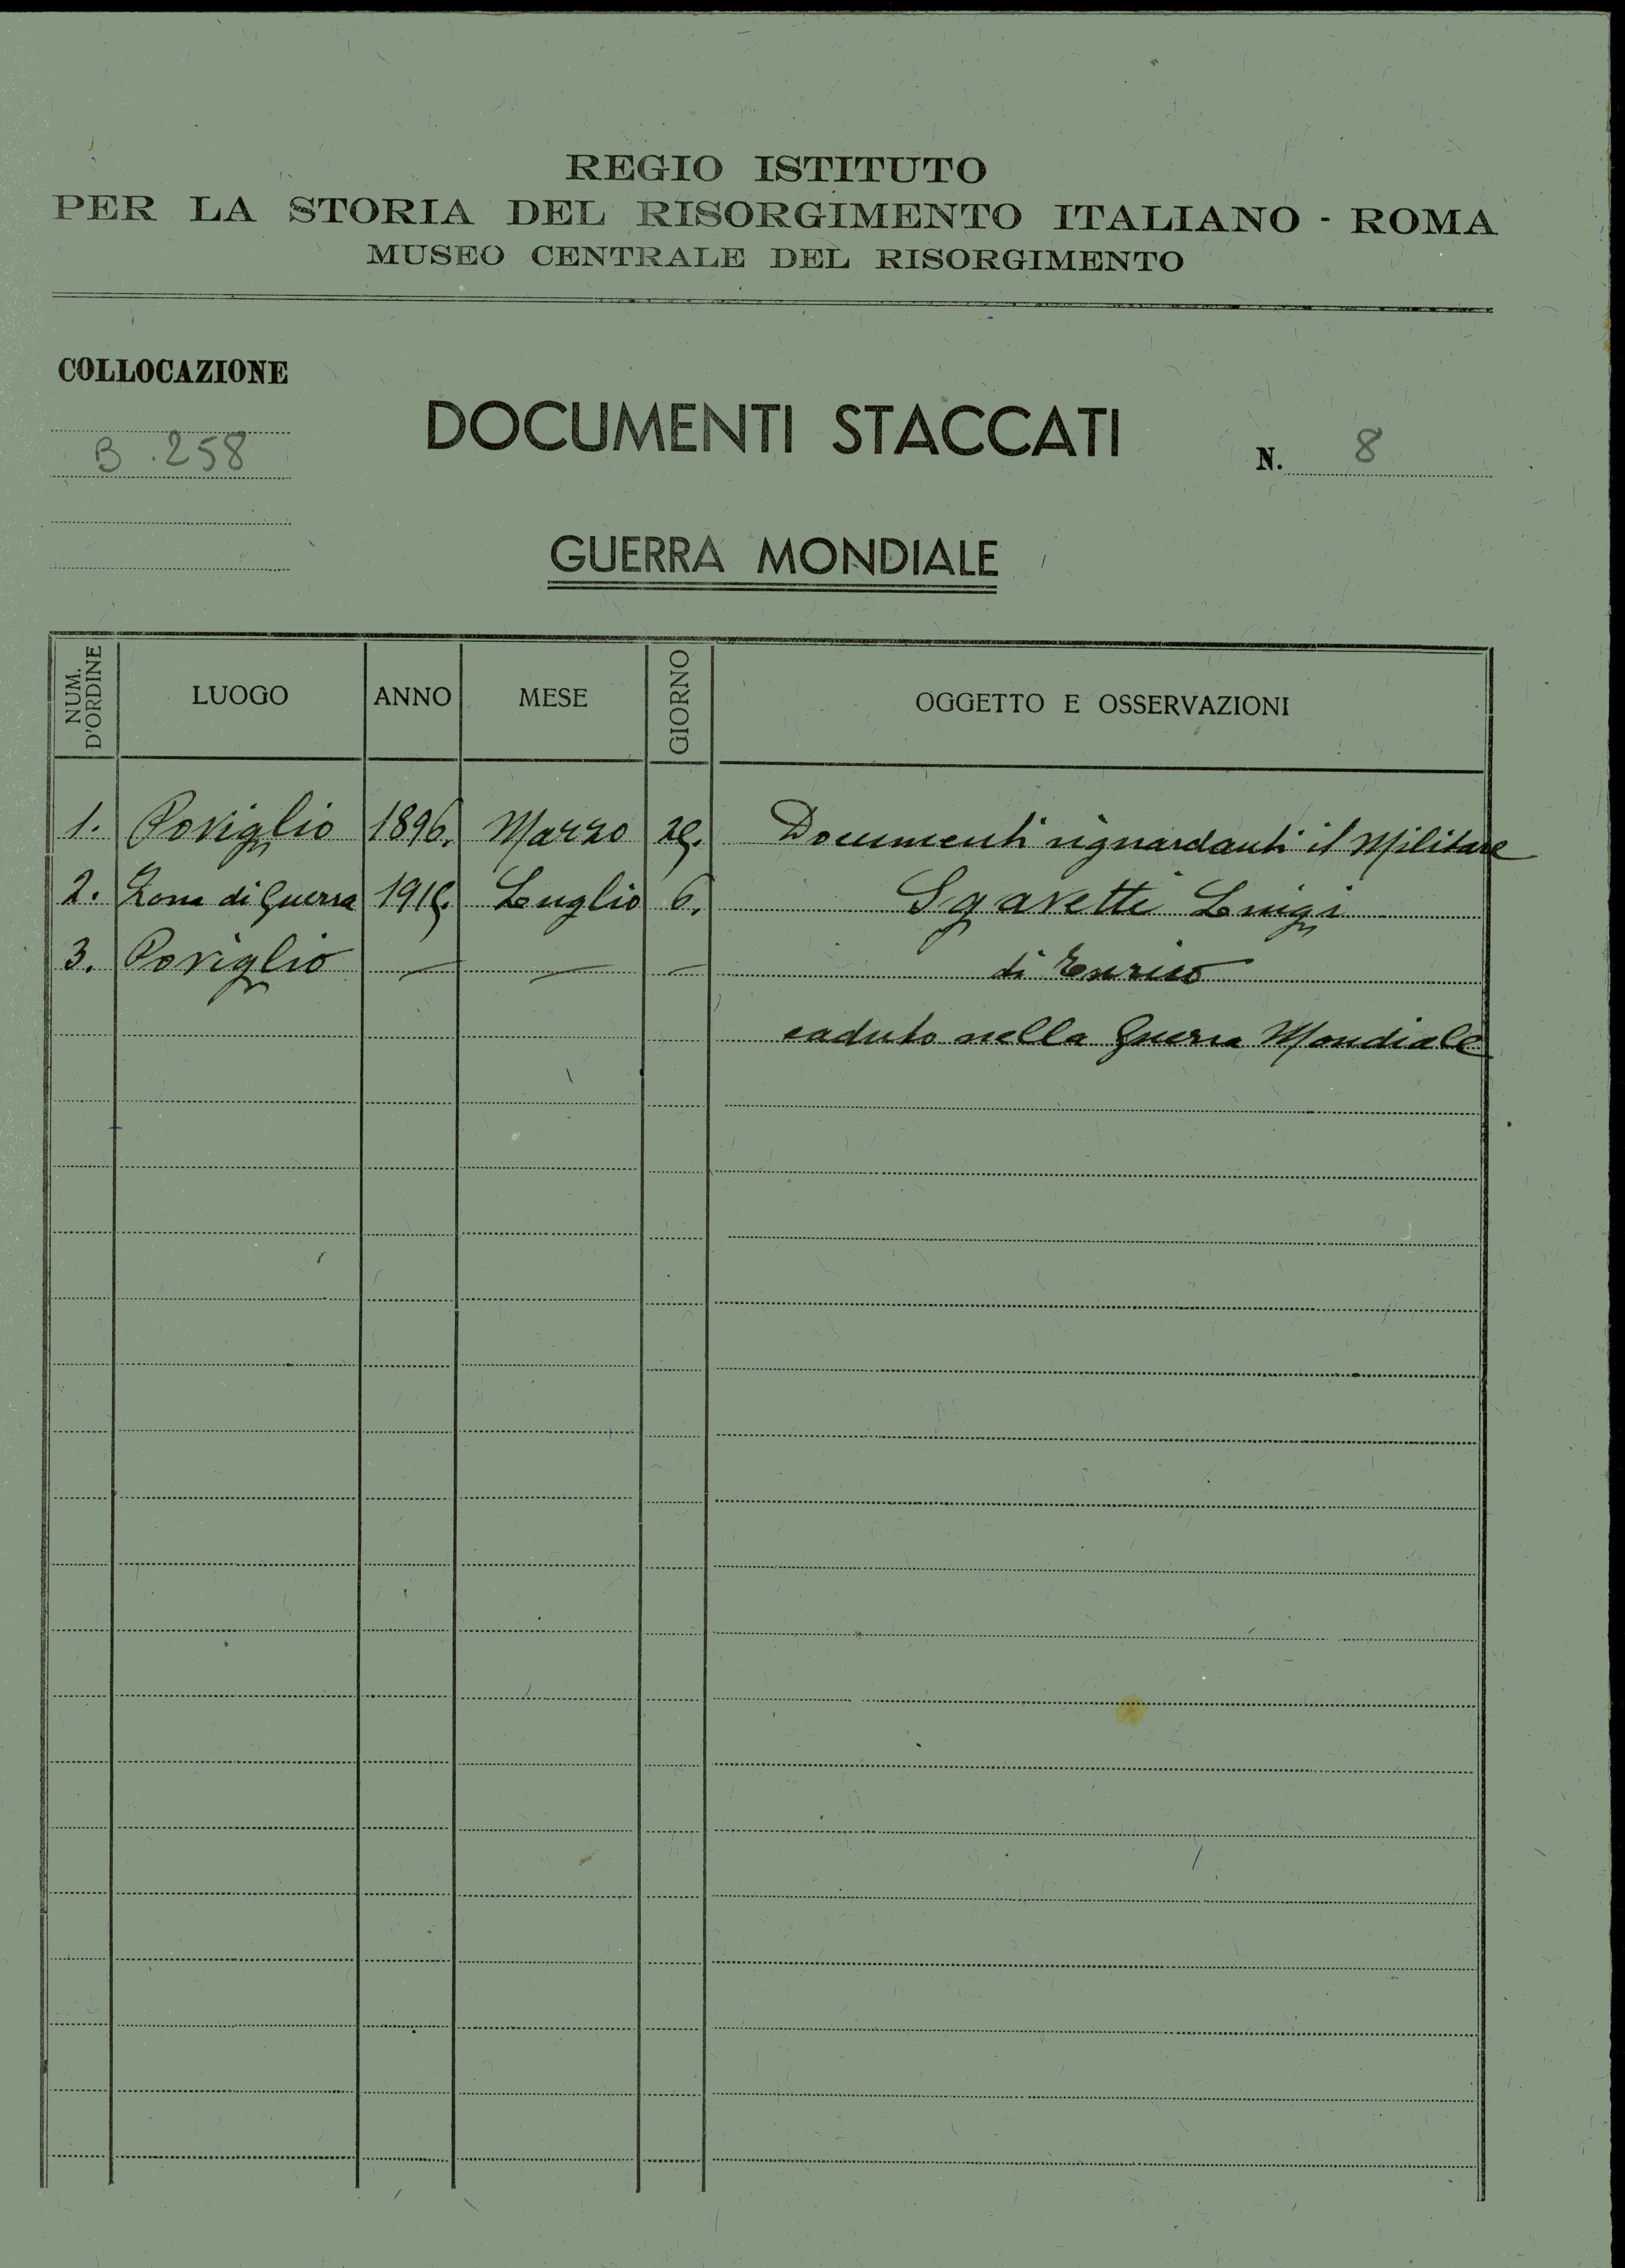 REGIO ISTITUTO
PER LA STORIA DEL RISORGIMENTO ITALIANO - ROMA
MUSEO CENTRALE DEL RISORGIMENTO
COLLOCAZIONE
B. 258
DOCUMENTI STACCATI
N. 8
GUERRA MONDIALE
NUM. D'ORDINE LUOGO ANNO MESE GIORNO OGGETTO E OSSERVAZIONI
1. Poviglio 1896. Marzo 25. Documenti riguardanti il Militare
2. Zona di Guerra 1915. Luglio 6. Sgavetti Luigi
3. Poviglio — — — di Enrico
caduto nella Guerra Mondiale